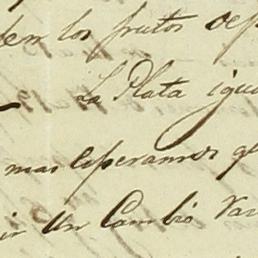 den los frutos dep
La Plata igua
mas esperamos q
ir un Cambio Va